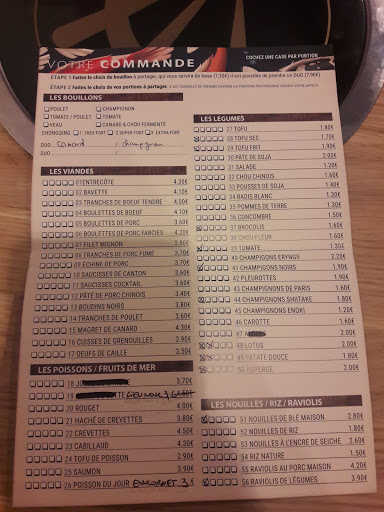 VOTRE COMMANDE
COCHEZ UNE CASE PAR PORTION
ÉTAPE 1 Faites le choix du bouillon à partager, qui vous servira de base (7,50€) il est possible de prendre un DUO (7,90€)
ÉTAPE 2 Faites le choix de vos portions à partager.
LES BOUILLONS
POULET CHAMPIGNON
TOMATE / POULET TOMATE
VEAU CANARD & CHOU FERMENTÉ
CHONGQING 1. TRES FORT 2 SUPER FORT 3 EXTRA FORT
DUO canard / champignon
DUO /
LES VIANDES
01 ENTRECÔTE 4.30€
02 BAVETTE 4.10€
03 TRANCHES DE BOEUF TENDRE 4.00€
04 BOULETTES DE BOEUF 4.10€
05 BOULETTES DE PORC 3.60€
06 BOULETTES DE PORC FARCIES 4.20€
07 FILET MIGNON 3.80€
08 TRANCHES DE PORC FUMÉ 3.70€
09 ÉCHINE DE PORC 3.70€
10 SAUCISSES DE CANTON 3.60€
11 SAUCISSES COCKTAIL 3.60€
12 PÂTE DE PORC CHINOIS 3.40€
13 BOUDINS NOIRS 3.80€
14 TRANCHES DE POULET 3.60€
15 MAGRET DE CANARD 4.30€
16 CUISSES DE GRENOUILLES 3.90€
17 OEUFS DE CAILLE 3.50€
LES POISSONS / FRUITS DE MER
18 3.70€
19
20 ROUGET 4.00€
21 HACHÉ DE CREVETTES 3.80€
22 CREVETTES 4.50€
23 CABILLAUD 4.30€
24 TOFU DE POISSON 3.90€
25 SAUMON 3.90€
26 POISSON DU JOUR ENCORNET 3 €
LES LEGUMES
27 TOFU 1.80€
28 TOFU SEC 1.70€
29 TOFU FRIT 1.90€
30 PÂTE DE SOJA 2.00€
31 SALADE 1.20€
32 CHOU CHINOIS 1.60€
33 POUSSES DE SOJA 1.40€
34 RADIS BLANC 1.30€
35 POMMES DE TERRE 1.30€
36 CONCOMBRE 1.50€
37 BROCOLIS 1.60€
38 CHOU-FLEUR 1.60€
39 TOMATE 1.30€
40 CHAMPIGONS ERYNGII 2.20€
41 CHAMPIGONS NOIRS 1.90€
42 PLEUROTTES 1.90€
43 CHAMPIGONS DE PARIS 1.60€
44 CHAMPIGNONS SHIITAKE 1.80€
45 CHAMPIGONS ENOKI 1.20€
46 CAROTTE 1.60€
47 2.00€
48 LOTUS 2.00€
49 PATATE DOUCE 1.80€
50 ASPERGE 2.00€
LES NOUILLES / RIZ / RAVIOLIS
51 NOUILLES DE BLÉ MAISON 2.80€
52 NOUILLES DE RIZ 2.00€
53 NOUILLES À L'ENCRE DE SEICHE 2.60€
54 RIZ NATURE 1.50€
55 RAVIOLIS AU PORC MAISON 4.20€
56 RAVIOLIS DE LÉGUMES 3.90€